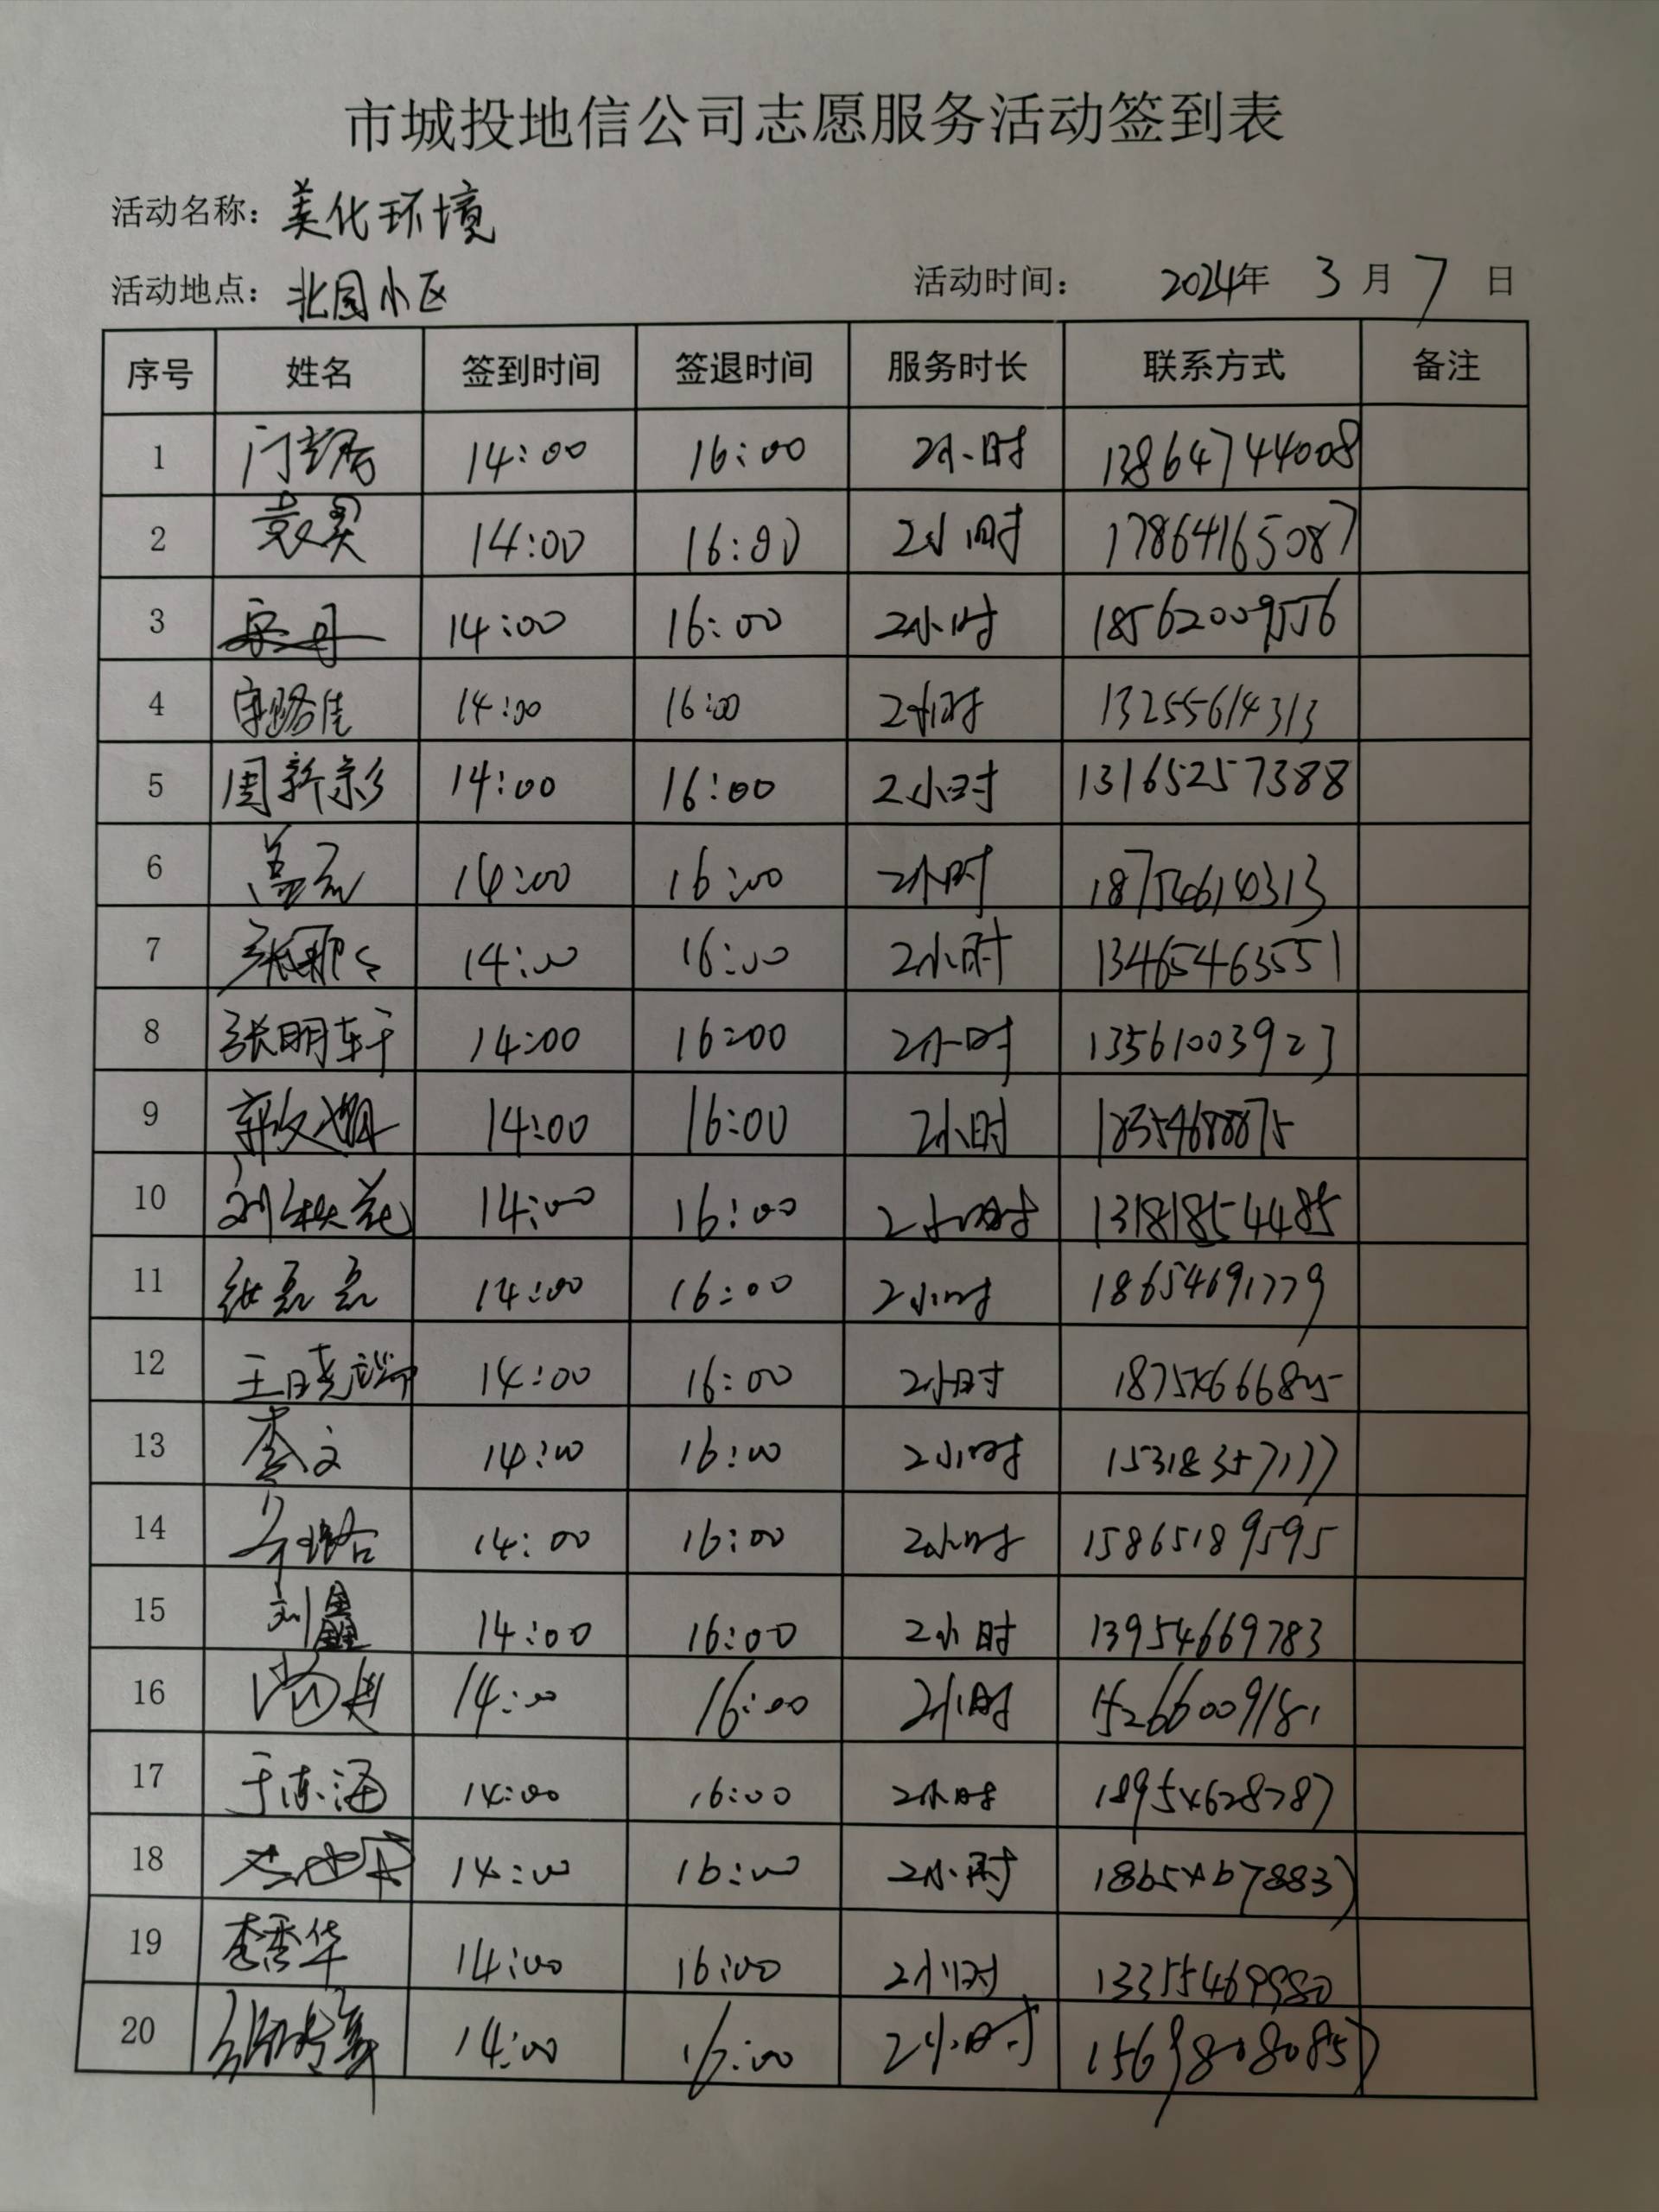 市城投地信公司志愿服务活动签到表
活动名称：美化环境
活动地点：北国小区 活动时间： 2024年 3月7日
序号 姓名 签到时间 签退时间 服务时长 联系方式 备注
1 14:00 16:00 2小时 13864744008
2 袁昊 14:00 16:00 2小时 17864165087
3 14:00 16:00 2小时 18562009556
4 14:00 16:00 2小时 13255614313
5 周新彩 14:00 16:00 2小时 13165257388
6 盖元 14:00 16:00 2小时 18754614313
7 张那 14:00 16:00 2小时 13465463551
8 张明轩 14:00 16:00 2小时 13561003923
9 14:00 16:00 2小时
10 刘秩花 14:00 16:00 2小时 13181854485
11 张磊磊 14:00 16:00 2小时 18654691779
12 王晓端 14:00 16:00 2小时
13 李文 14:00 16:00 2小时 15318357177
14 14:00 16:00 2小时 15865189595
15 刘鑫 14:00 16:00 2小时 13954669783
16 14:00 16:00 2小时 15266009181
17 于东海 14:00 16:00 2小时 18954628787
18 14:00 16:00 2小时 18654678837
19 李秀华 14:00 16:00 2小时 13355469980
20 14:00 16:00 2小时